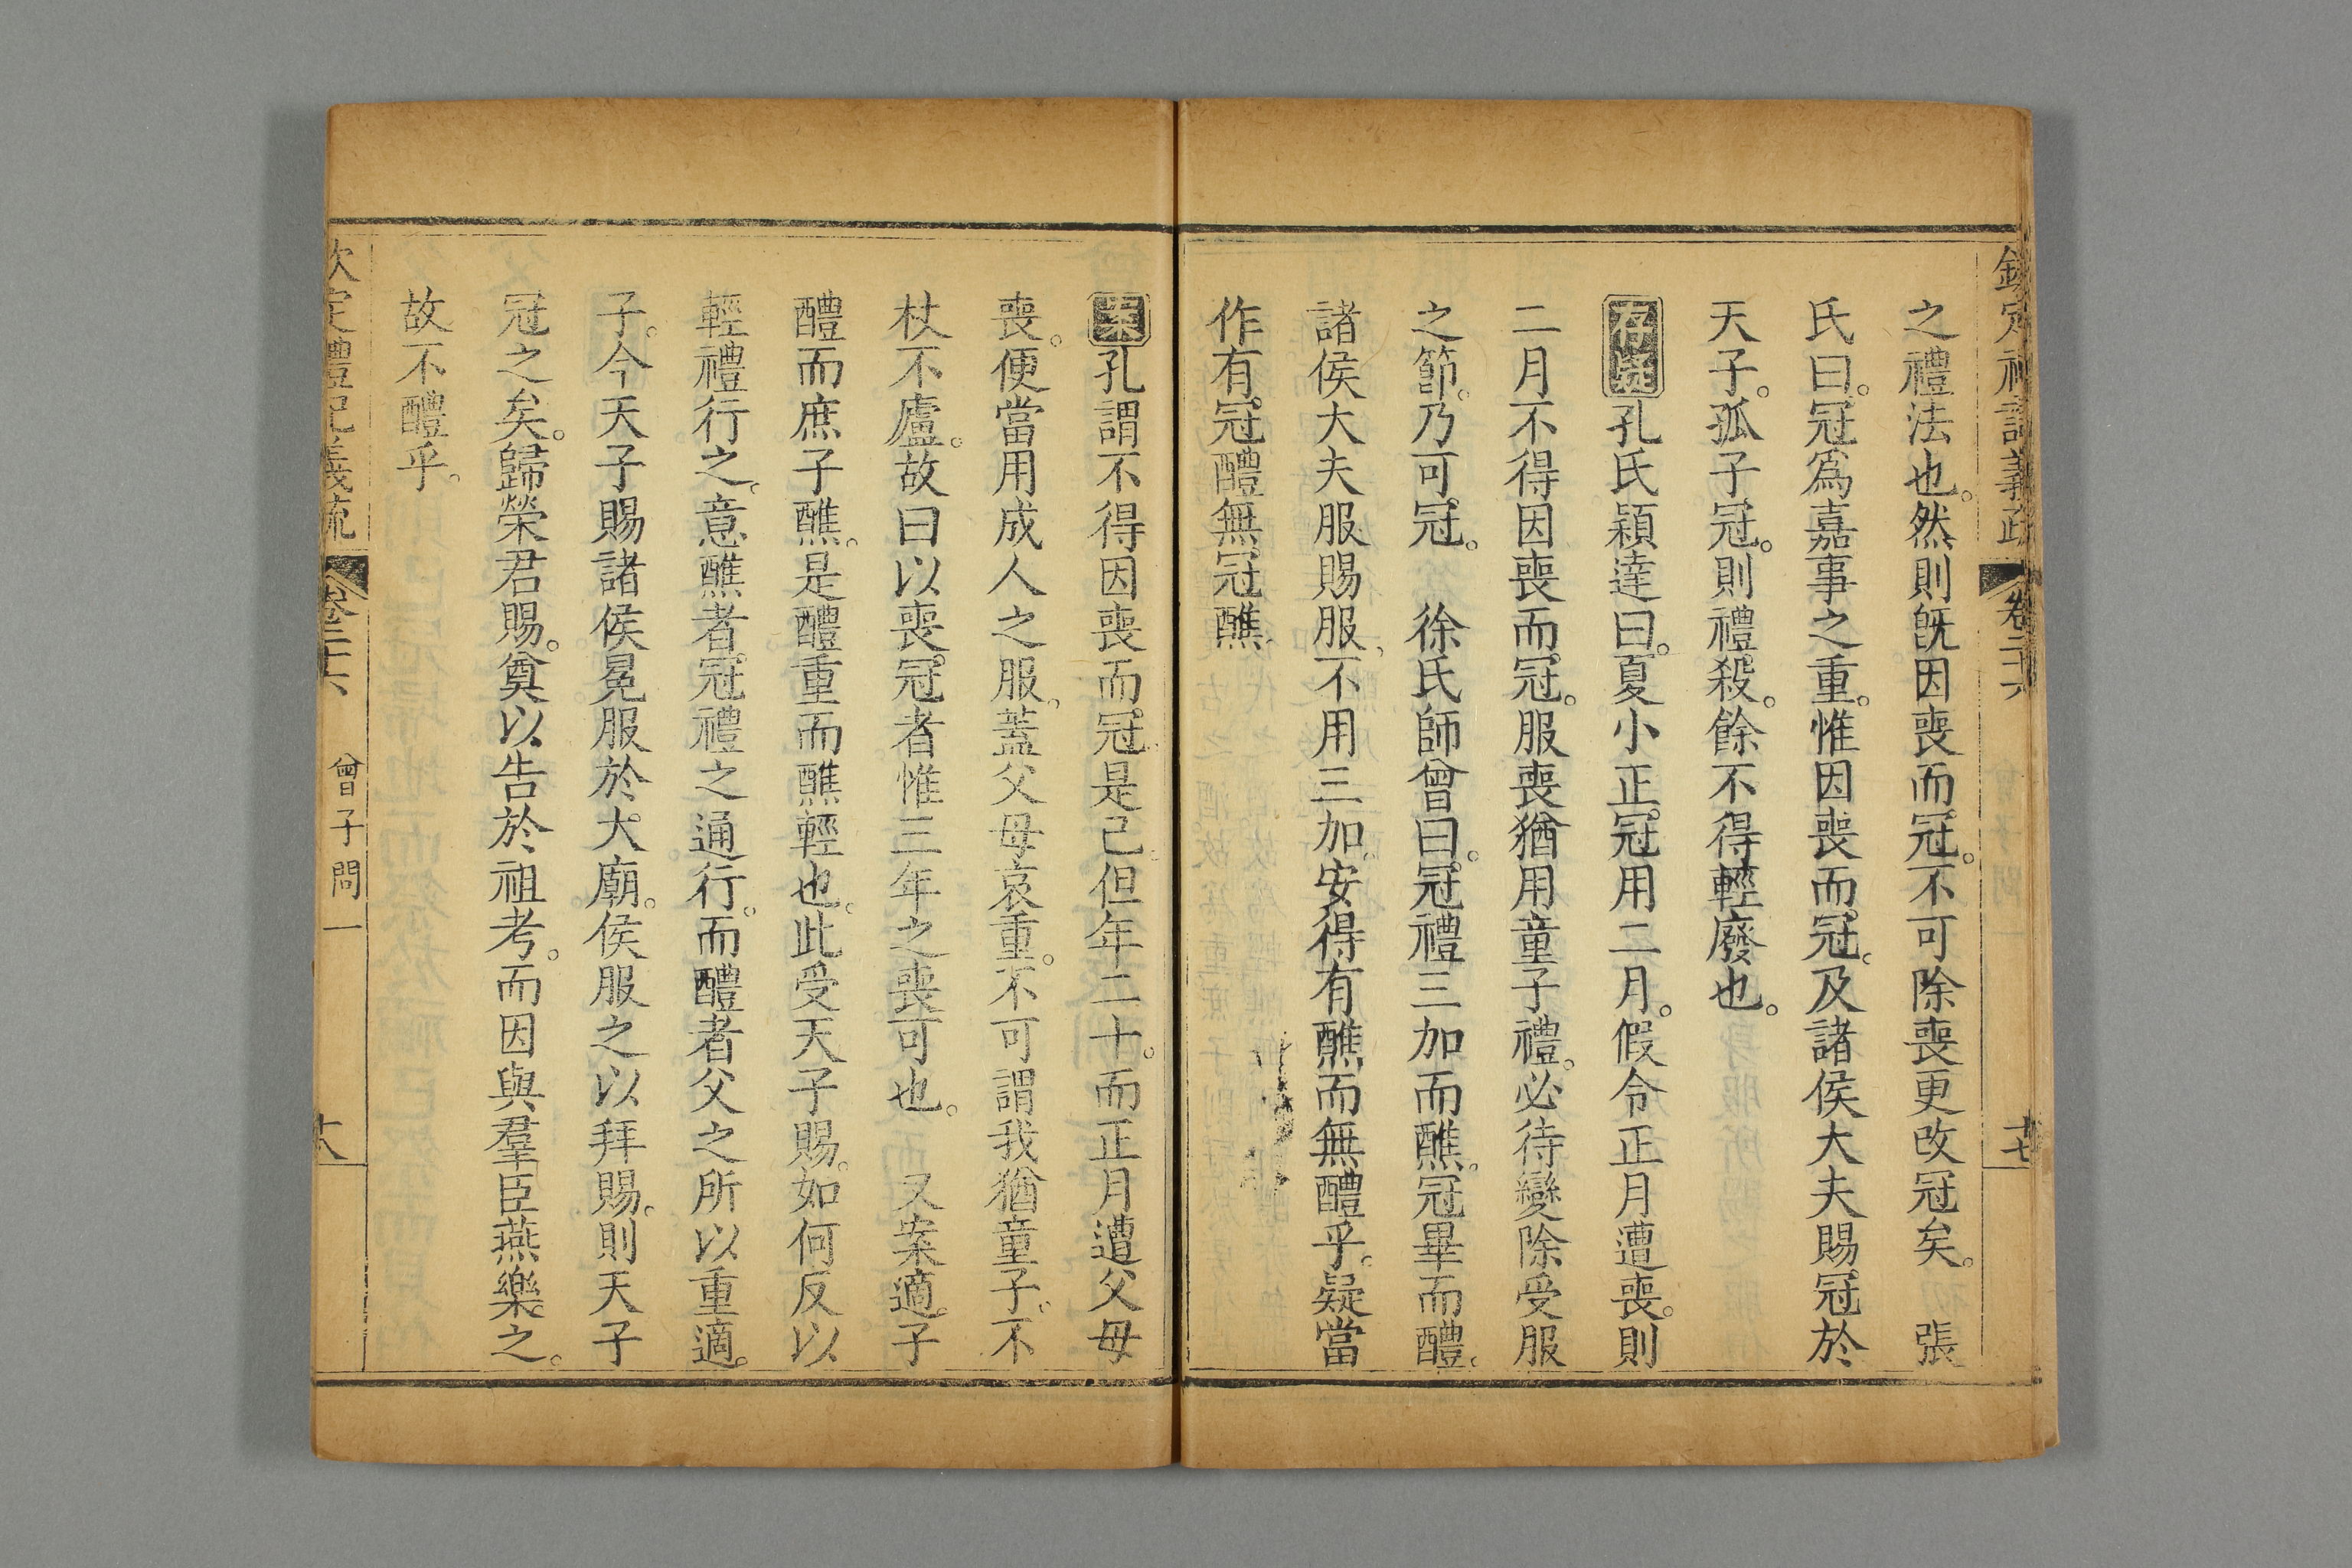 欽定禮記義疏 卷二十六 十七
之禮法也。然則既因喪而冠。不可除喪更改冠矣。 張
氏曰。冠爲嘉事之重。惟因喪而冠。及諸侯大夫賜冠於
天子。孤子冠。則禮殺。餘不得輕廢也。
存疑孔氏穎達曰。夏小正。冠用二月。假令正月遭喪。則
二月不得因喪而冠。服喪猶用童子禮。必待變除受服
之節。乃可冠。 徐氏師曾曰。冠禮三加而醮。冠畢而醴。
諸侯大夫服賜服、不用三加。安得有醮而無醴乎。疑當
作有冠醴無冠醮。
案孔謂不得因喪而冠。是已。但年二十。而正月遭父母
喪。便當用成人之服。蓋父母哀重。不可謂我猶童子。不
杖不廬。故曰以喪冠者惟三年之喪可也。 又案適子
醴而庶子醮。是醴重而醮輕也。此受天子賜。如何反以
輕禮行之。意醮者冠禮之通行。而醴者父之所以重適
子。今天子賜諸侯冕服於大廟。侯服之以拜賜。則天子
冠之矣。歸榮君賜。奠以告於祖考。而因與羣臣燕樂之。
故不醴乎。
欽定禮記義疏 卷二十六 曾子問一 十八